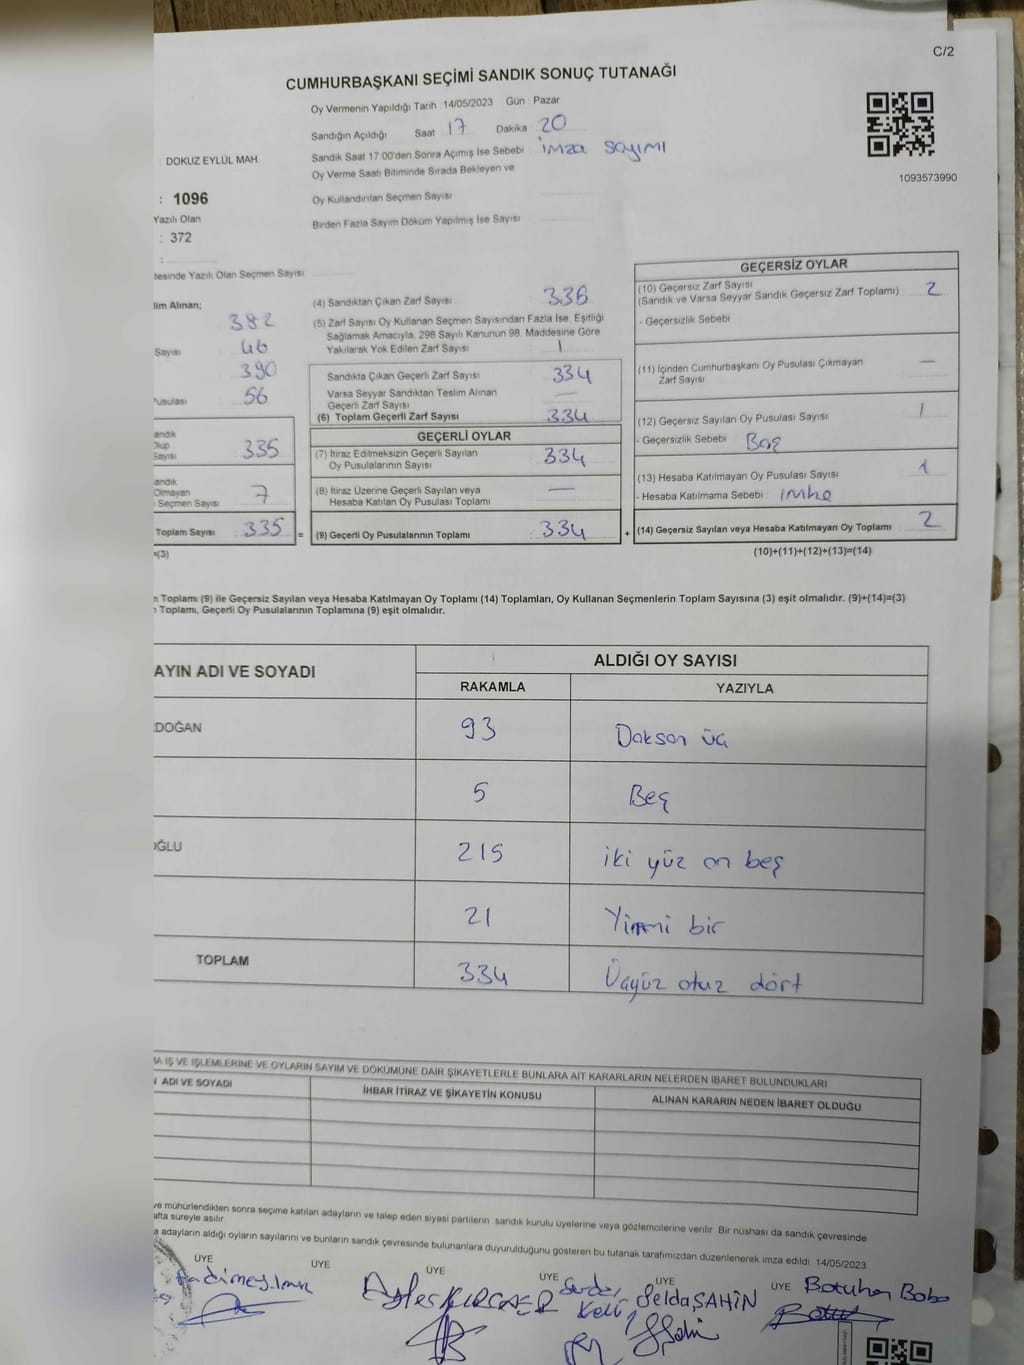 C/2
CUMHURBAŞKANI SEÇİMİ SANDIK SONUÇ TUTANAĞI
Oy Vermenin Yapıldığı Tarih 14/05/2023 Gün Pazar
Sandığın Açıldığı Saat 17 Dakika 20
: DOKUZ EYLÜL MAH.
Sandık Saat 17:00'den Sonra Açımış İse Sebebi imza sayımı
Oy Verme Saati Bitiminde Sırada Bekleyen ve
Oy Kullandırılan Seçmen Sayısı
1093573990
: 1096
Yazılı Olan
: 372
Birden Fazla Sayım Döküm Yapılmış İse Sayısı
:
tesinde Yazılı Olan Seçmen Sayısı
lim Alınan;
382
Sayısı 46
390
Pusulası 56
(4) Sandıktan Çıkan Zarf Sayısı 336
(5) Zarf Sayısı Oy Kullanan Seçmen Sayısından Fazla İse, Eşitliği
Sağlamak Amacıyla, 298 Sayılı Kanunun 98. Maddesine Göre
Yakılarak Yok Edilen Zarf Sayısı 1
Sandıkta Çıkan Geçerli Zarf Sayısı 334
Varsa Seyyar Sandıktan Teslim Alınan
Geçerli Zarf Sayısı —
(6) Toplam Geçerli Zarf Sayısı 334
andık
Olup
Sayısı 335
andık
Olmayan
Seçmen Sayısı 7
Toplam Sayısı 335 =
=(3)
GEÇERLİ OYLAR
(7) İtiraz Edilmeksizin Geçerli Sayılan
Oy Pusulalarının Sayısı 334
(8) İtiraz Üzerine Geçerli Sayılan veya
Hesaba Katılan Oy Pusulası Toplamı —
(9) Geçerli Oy Pusulalarının Toplamı 334 +
GEÇERSİZ OYLAR
(10) Geçersiz Zarf Sayısı
(Sandık ve Varsa Seyyar Sandık Geçersiz Zarf Toplamı) 2
- Geçersizlik Sebebi
(11) İçinden Cumhurbaşkanı Oy Pusulası Çıkmayan
Zarf Sayısı —
(12) Geçersiz Sayılan Oy Pusulası Sayısı 1
- Geçersizlik Sebebi Boş
(13) Hesaba Katılmayan Oy Pusulası Sayısı 1
- Hesaba Katılmama Sebebi : imha
(14) Geçersiz Sayılan veya Hesaba Katılmayan Oy Toplamı 2
(10)+(11)+(12)+(13)=(14)
n Toplamı (9) ile Geçersiz Sayılan veya Hesaba Katılmayan Oy Toplamı (14) Toplamları, Oy Kullanan Seçmenlerin Toplam Sayısına (3) eşit olmalıdır. (9)+(14)=(3)
ı Toplamı, Geçerli Oy Pusulalarının Toplamına (9) eşit olmalıdır.
AYIN ADI VE SOYADI
ALDIĞI OY SAYISI
RAKAMLA YAZIYLA
DOĞAN 93 Doksan üç
5 Beş
OĞLU 215 iki yüz on beş
21 Yirmi bir
TOPLAM 334 Üçyüz otuz dört
MA İŞ VE İŞLEMLERİNE VE OYLARIN SAYIM VE DÖKÜMÜNE DAİR ŞİKAYETLERLE BUNLARA AİT KARARLARIN NELERDEN İBARET BULUNDUKLARI
N ADI VE SOYADI İHBAR İTİRAZ VE ŞİKAYETİN KONUSU ALINAN KARARIN NEDEN İBARET OLDUĞU
ve mühürlendikten sonra seçime katılan adayların ve talep eden siyasi partilerin sandık kurulu üyelerine veya gözlemcilerine verilir. Bir nüshası da sandık çevresinde
afta süreyle asılır.
a adayların aldığı oyların sayılarını ve bunların sandık çevresinde bulunanlara duyurulduğunu gösteren bu tutanak tarafımızdan düzenlenerek imza edildi. 14/05/2023
ÜYE ÜYE ÜYE ÜYE ÜYE ÜYE
Selda ŞAHİN
Batuhan